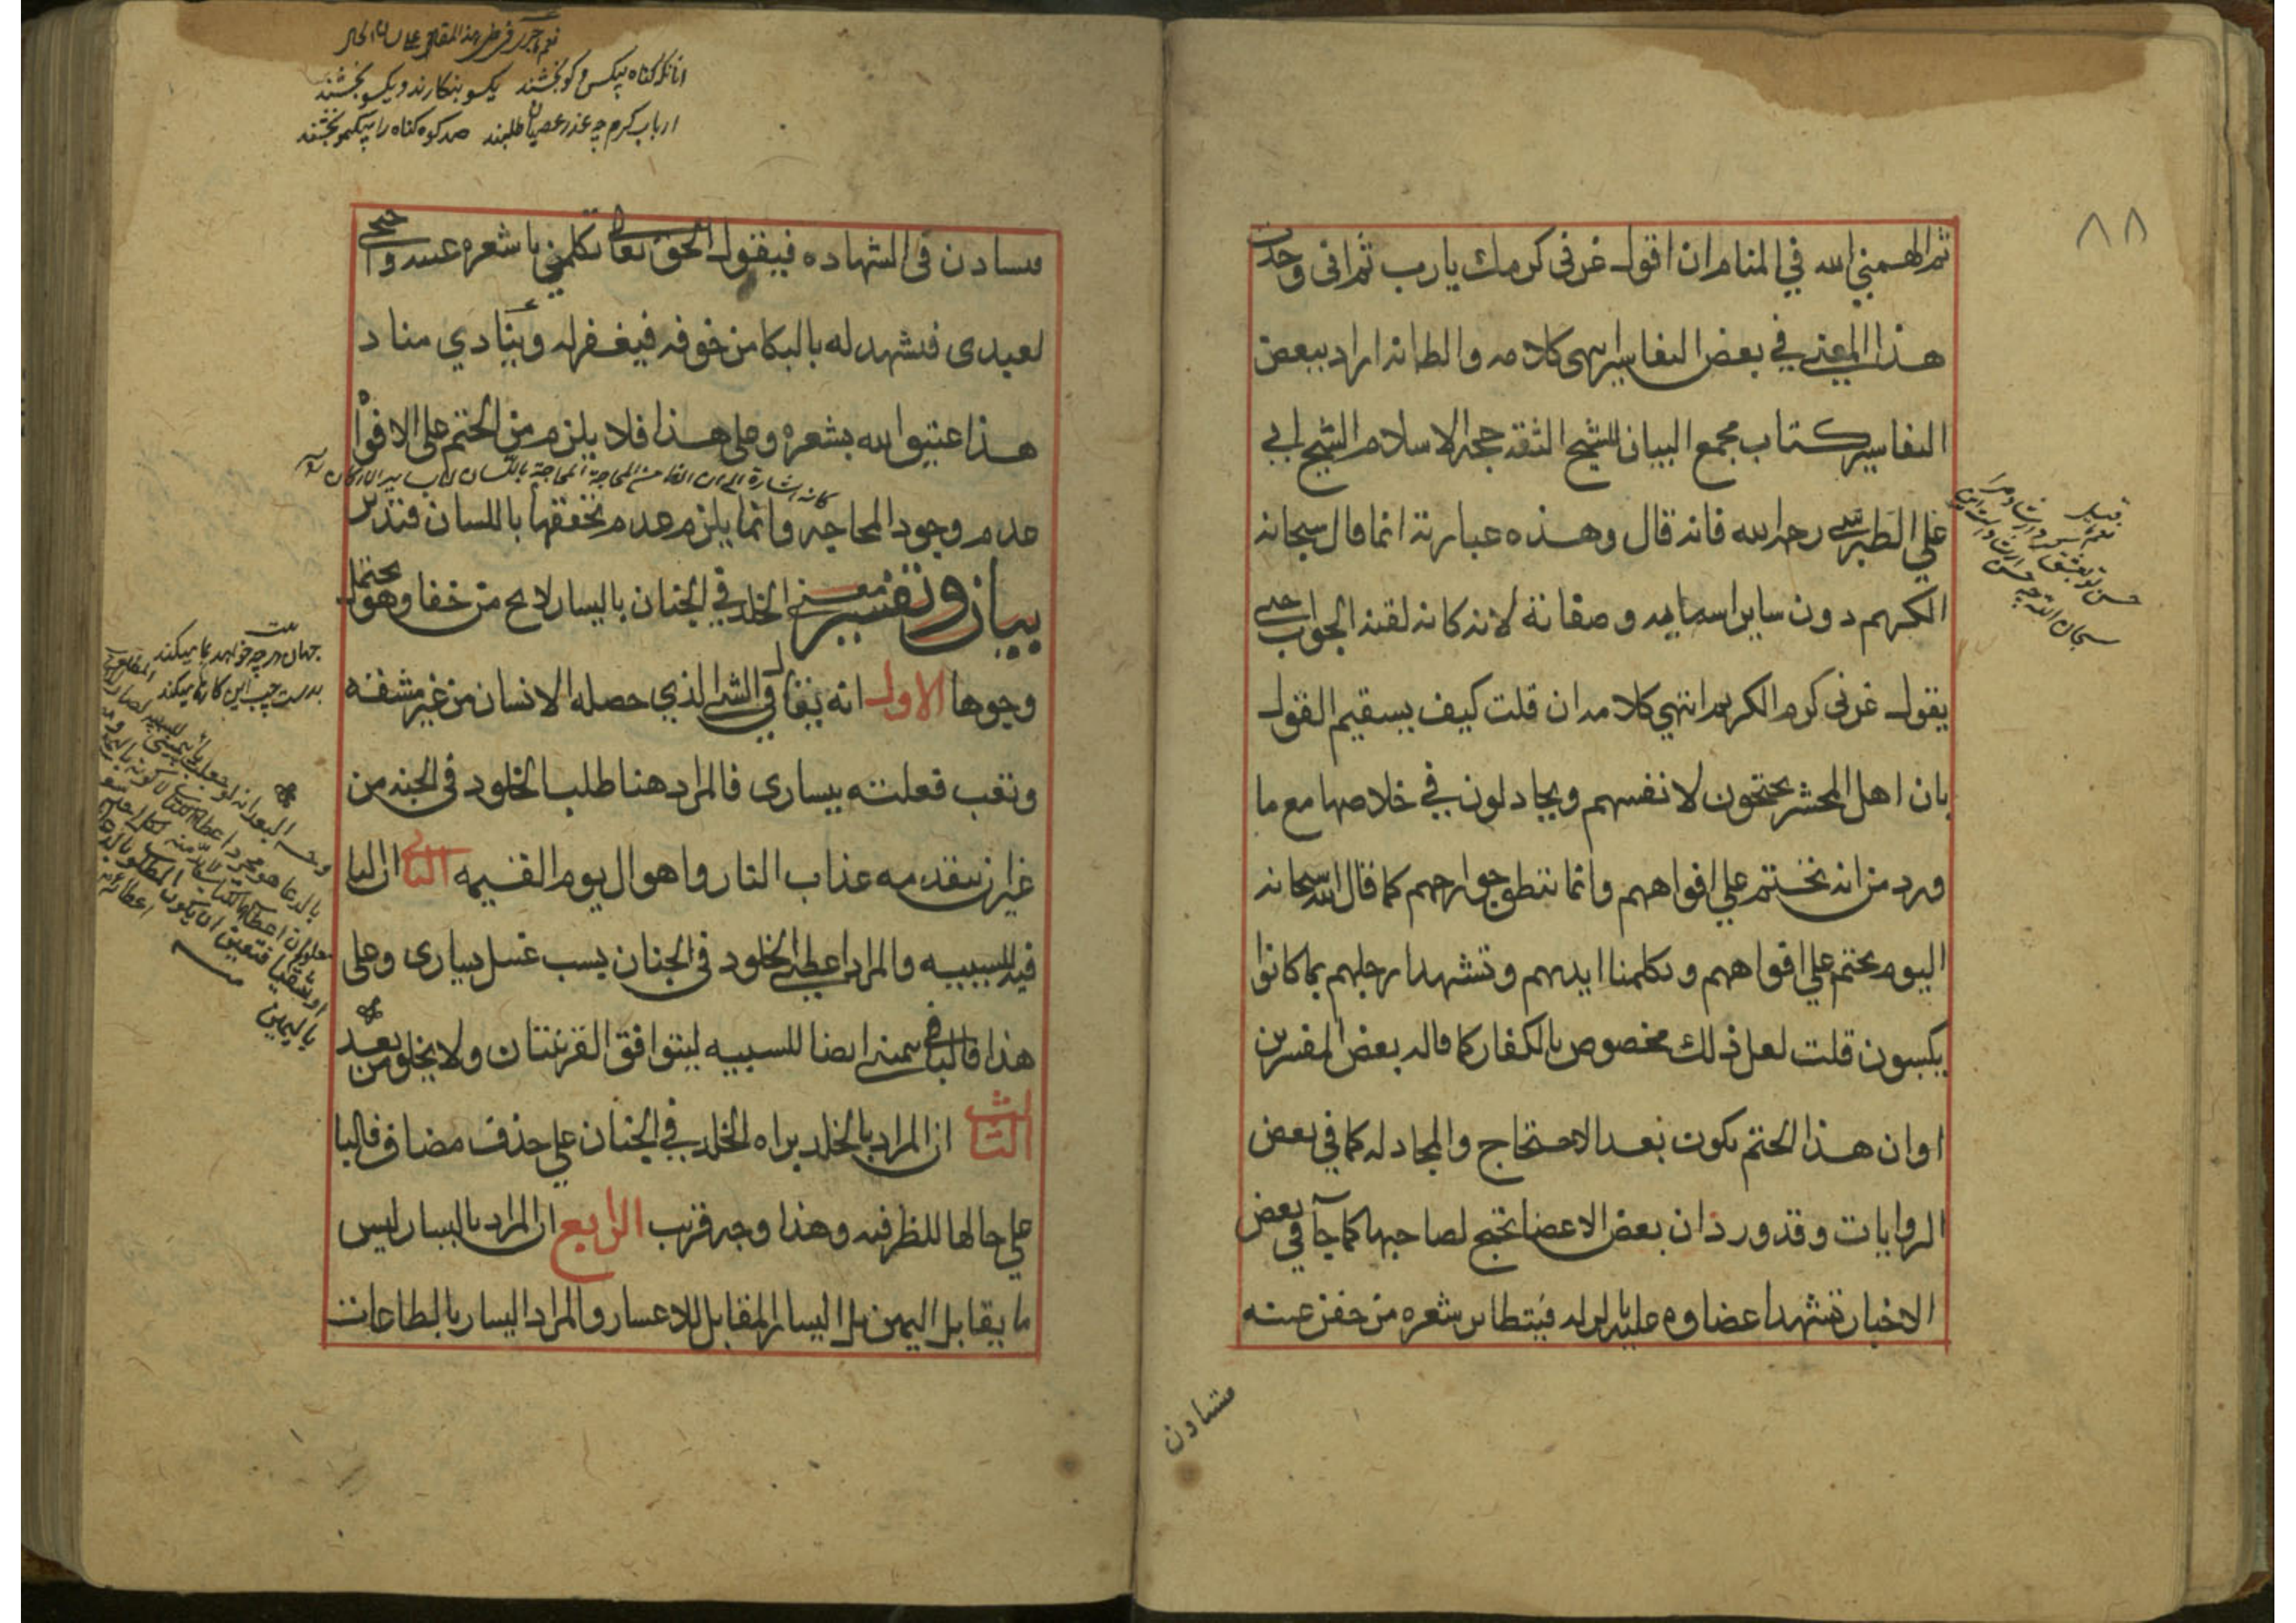 ٨٨
ثم الهمني الله في المنام ان اقول غرني كرمك يا رب ثم اني وجدت
هذا المعنى في بعض التفاسير انتهى كلامه والظانه اراد ببعض
التفاسير كتاب مجمع البيان للشيخ الثقة حجة الاسلام الشيخ ابي
علي الطبرسي رحمه الله فانه قال وهذه عبارته انما قال سبحانه
الكريم دون ساير اسمايه وصفاته لانه كانه لقنه الجواب حتى
يقول غرني كرم الكريم انتهى كلامه ان قلت كيف يستقيم القول
بان اهل المحشر يحتجون لانفسهم ويجادلون في خلاصها مع ما
ورد من انه نختم على افواههم وانما تنطق جوارحهم كما قال الله سبحانه
اليوم نختم على افواههم وتكلمنا ايديهم وتشهد ارجلهم بما كانوا
يكسبون قلت لعل ذلك مخصوص بالكفار كما قاله بعض المفسرين
او ان هذا الختم يكون بعد الاحتجاج والمجادله كما في بعض
الروايات وقد ورد ان بعض الاعضا تحتج لصاحبها كما جآ في بعض
الاخبار تشهد اعضاوه عليه بالزله فيتطاير شعره من جفن عينه
سبحان الله چه حسن است اين
فيستاذن في الشهاده فيقول الحق تعالى تكلمي يا شعره عينه واحتجي
لعبدى فتشهد له بالبكا من خوفه فيغفر له وينادي مناد
هذا عتيق الله بشعره وعلى هذا فلا يلزم من الختم على الافواه
عدم وجود المحاجه وانما يلزم عدم تحققها باللسان فتدبر
بيان وتفسير معنى الخلد في الجنان باليسار لا يخ من خفا وهو يحتمل
وجوها الاول انه يقال في الشي الذي حصله الانسان من غير مشقه
وتعب فعلته بيسارى فالمراد هنا طلب الخلود في الجنه من
غير ان يتقدمه عذاب النار واهوال يوم القيمه الثاني ان البا
فيه للسببيه والمراد اعطني الخلود في الجنان بسبب غسل يسارى وعلى
هذا فالبا في بيمينى ايضا للسببيه ليتوافق القرينتان ولا يخلو من بعد
الثالث ان المراد بالخلد براه الخلد في الجنان على حذف مضاف فالبا
على حالها للظرفيه وهذا وجه قريب الرابع ان المراد باليسار ليس
ما يقابل اليمين بل اليسار المقابل للاعسار والمراد اليسار بالطاعات
يكسو بنكارند و يكسو بخشند
ارباب كرم چه عذر عصيان طلبند صد كوه كناه را بيكمو بخشند
جهان هر چه خواهد بما ميكند
بدست چپ اين كارها ميكند